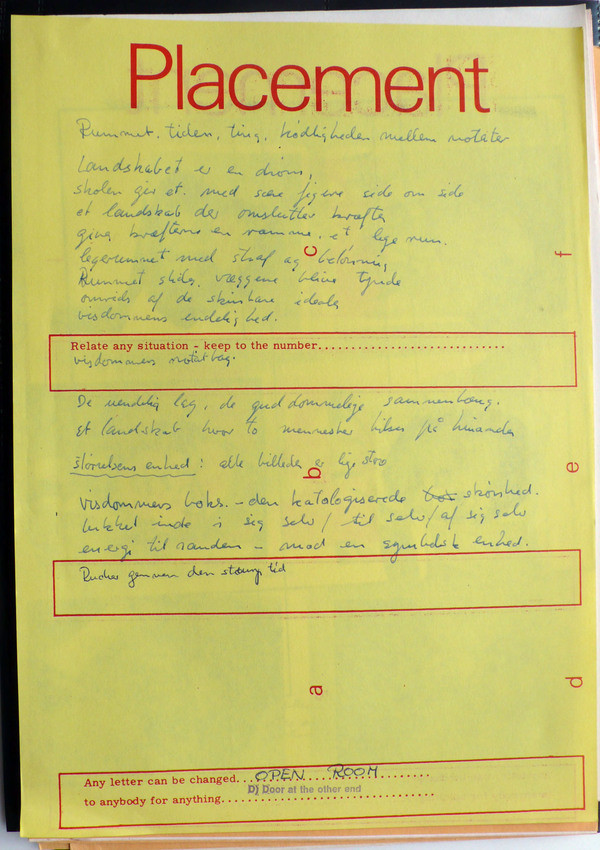 Placement
Rummet, tiden, ting, mellem notater
Landskabet er en drøm,
skolen gør et. med side om side
et landskab der omslutter kræfter
giver kræfterne en ramme. et lige rum.
legerummet med straf og belønning
c
f
Rummet skides. væggene blive tynde
omrids af de skinbare idealer
visdommens endelighed.
Relate any situation - keep to the number
visdommens notatbog.
De uendelig leg, de guddommelige sammenhæng.
et landskab hvor to mennesker hilser på hinanden
størrelsens enhed: alle billeder er lige store
b
e
visdommens boks. - den katologiserede skønhed.
lukket inde i sig selv / til selv / af sig selv
energi til randen - mod en symbolsk enhed.
gennem den tid
a
d
Any letter can be changed... OPEN ROOM
D) Door at the other end
to anybody for anything